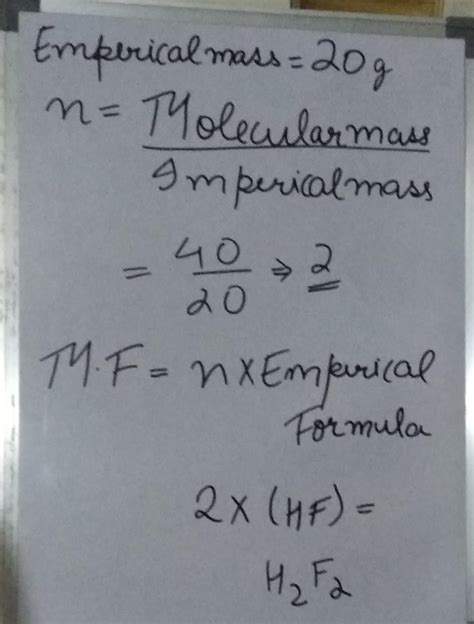 Emperical mass = 20g
n = Molecular mass
Imperical mass
= 40/20 ⇒ 2
M.F = n x Emperical
Formula
2 x (HF) =
H₂F₂